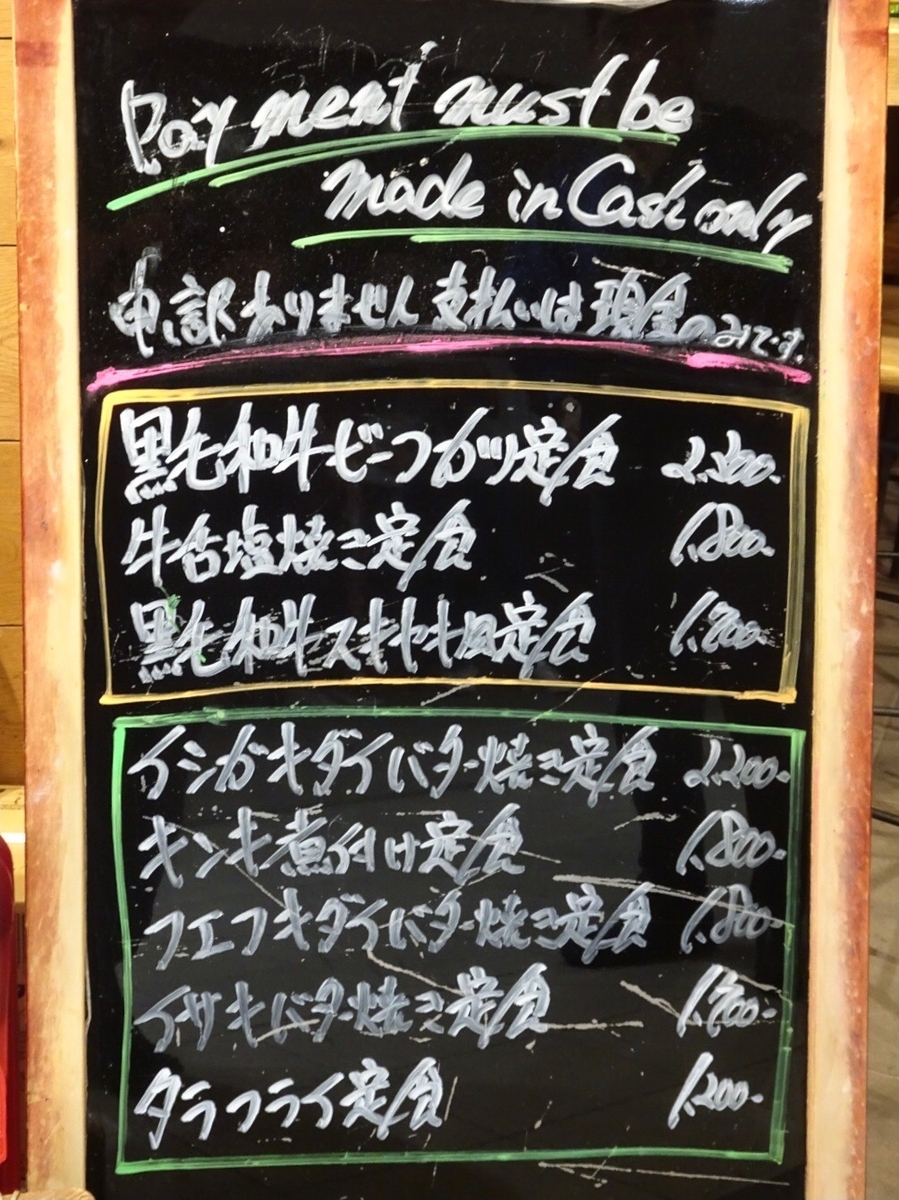 Payment must be
made in Cash only
申し訳ありません 支払いは現金のみです。
黒毛和牛ビーフカツ定食
牛舌塩焼き定食 1,800-
黒毛和牛スキヤキ風定食 1,700-
イシガキダイバター焼き定食 2,200-
キンキ煮付け定食 1,800-
フエフキダイバター焼き定食 1,800-
イサキバター焼き定食 1,700-
タラフライ定食 1,200-